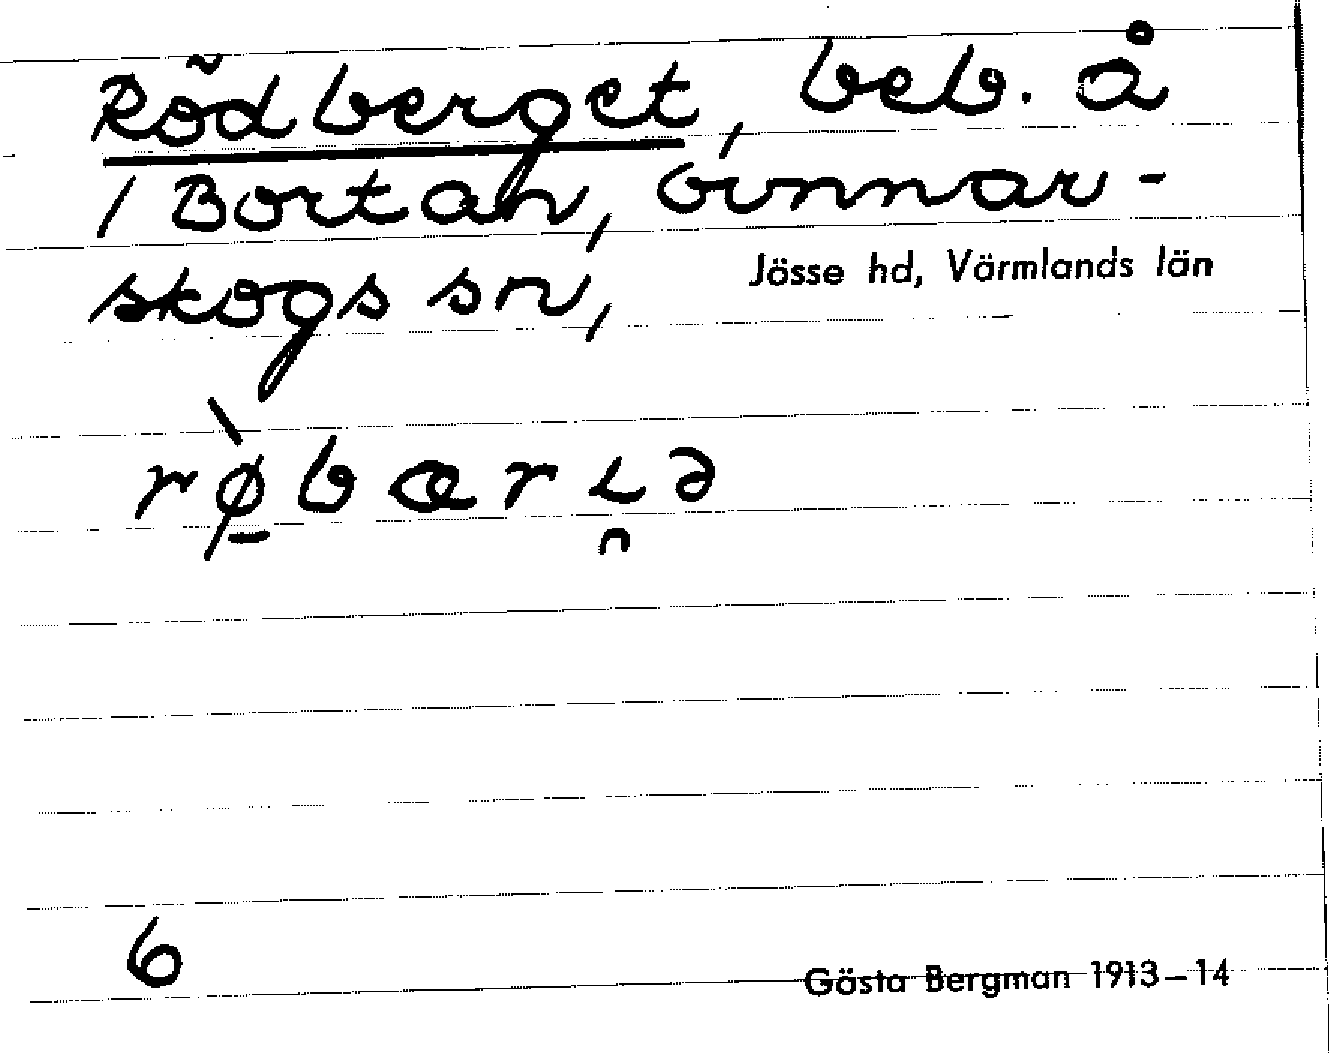 Rödberget, beb. å
/ Bortan, Gunnar-
skogs sn,
Jösse hd, Värmlands län
rø̠̀bærı̯ə
6
Gösta Bergman 1913–14